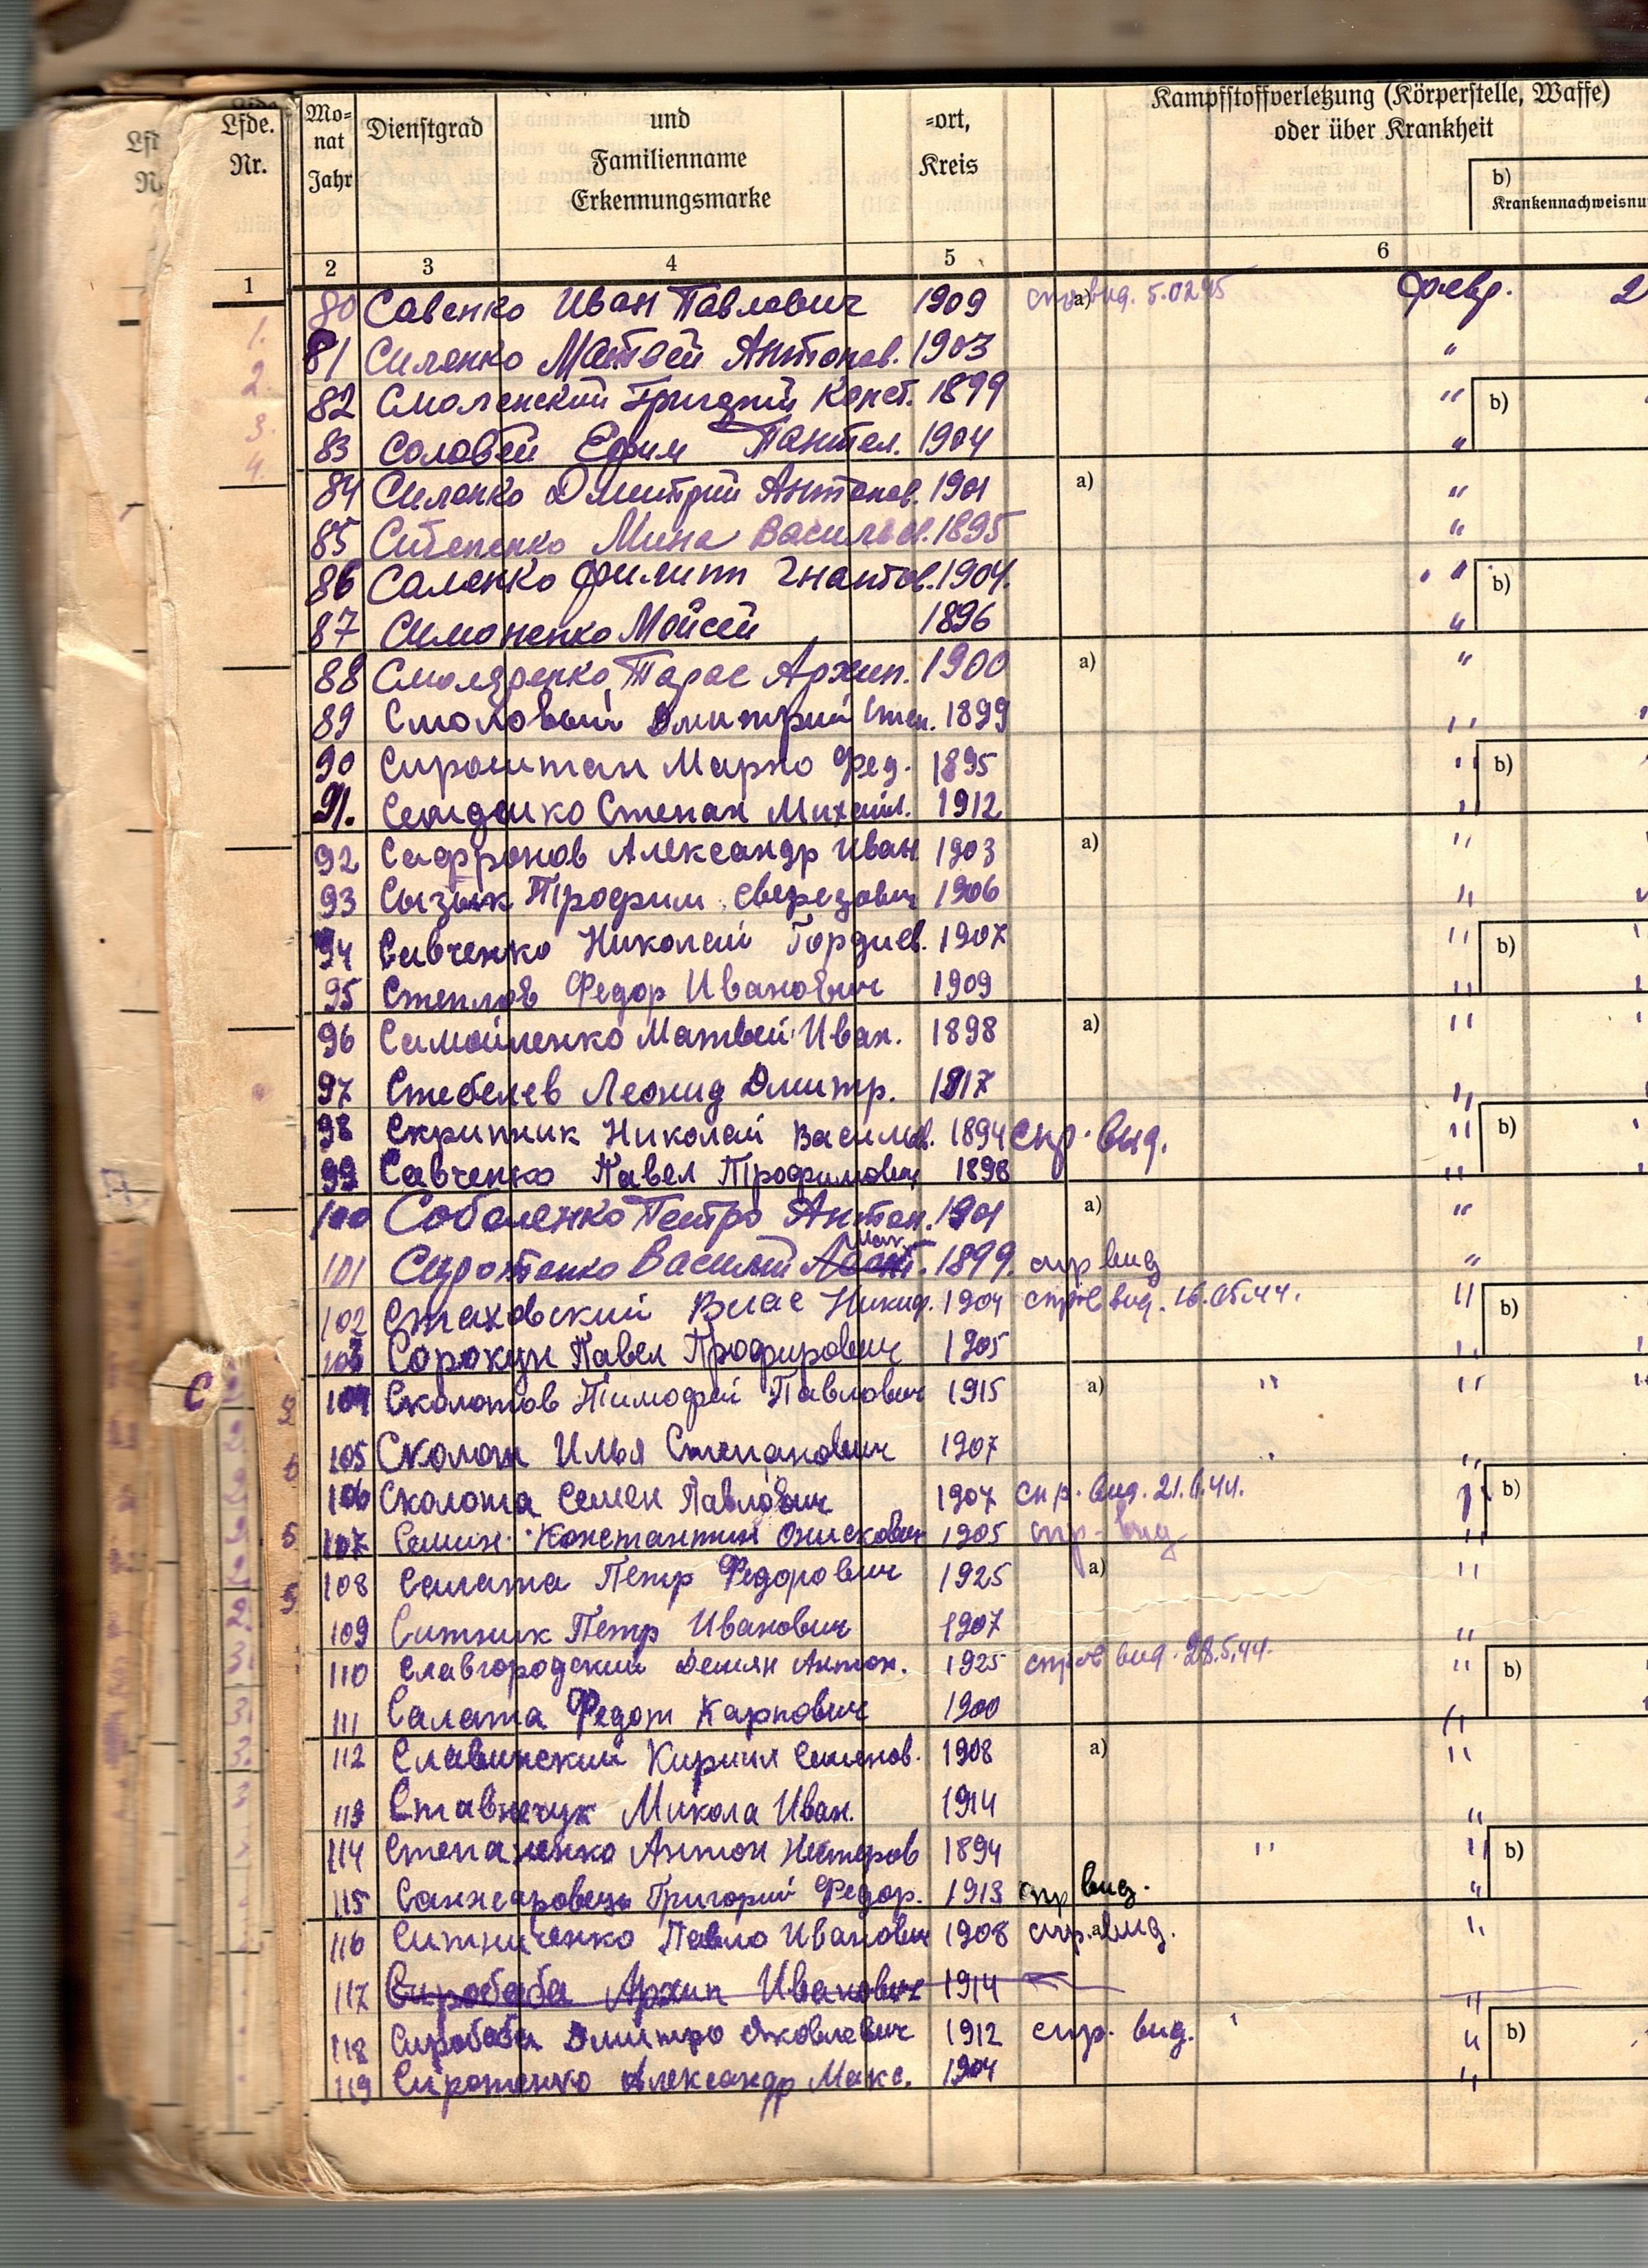 Lfde. Nr.
Mo-nat Jahr
Dienstgrad
und Familienname Erkennungsmarke
-ort, Kreis
Kampfstoffverletzung (Körperstelle, Waffe) oder über Krankheit
b)
Krankennachweisnu
1 2 3 4 5 6
80 Савенко Иван Павлович 1909 a) 5.02.45 февр. 2
1.
81 Силенко Матвей Антонов. 1903 "
2.
82 Смоленский Григорий Конст. 1899 " b)
3.
83 Соловей Ефим Пантел. 1904 "
4.
84 Силенко Дмитрий Антонов. 1901 a) "
85 Мина Васильев. 1895 "
86 Саленко Филипп Игнатов. 1904. " b)
87 Симоненко Мойсей 1896 "
88 Смоляренко Тарас Архип. 1900 a) "
89 Смоловый Дмитрий Степ. 1899 "
90 Сироштан Марко Фед. 1895 " b)
91. Степан Михайл. 1912 "
92 Сафронов Александр Иван 1903 a) "
93 Трофим 1906 "
94 Савченко Николай Гордиев. 1907 " b)
95 Степлов Федор Иванович 1909 "
96 Самойленко Матвей Иван. 1898 a) "
97 Стебелев Леонид Дмитр. 1917 "
98 Скрипник Николай Васильев. 1894 спр. вид. " b)
99 Савченко Павел Трофимович 1898 "
100 Соболенко Петро Антон. 1901 a) "
101 Сиротенко Василий 1899. спр вид "
102 Стаховский Влас Никиф. 1904 вид. 16.05.44. " b)
103 Сорокун Павел 1905 "
С
104 Сколотов Тимофей Павлович 1915 a) " "
105 Сколот Илья Степанович 1907 " "
106 Сколота Семен Павлович 1907 спр. вид. 21.6.44. b)
107 Семин Константин 1905 спр. вид "
108 Салата Петр Федорович 1925 a) "
109 Ситник Петр Иванович 1907 "
110 Славгородский Демян Антон. 1925 вид. 28.5.44. " b)
111 Салата Федот Карпович 1900 "
112 Славинский Кирилл Семенов. 1908 a) "
113 Ставничук Микола Иван. 1914 "
114 Степаненко Антон Нестеров 1894 " " b)
115 Санжаровець Григорий Федор. 1913 спр вид. "
116 Ситниченко Павло Иванович 1908 спр. a) вид. "
117 Сиробаба Архип Иванович 1914 "
118 Сиробаба Дмитро Яковлевич 1912 спр. вид. " b)
119 Сиротенко Александр Макс. 1904 "